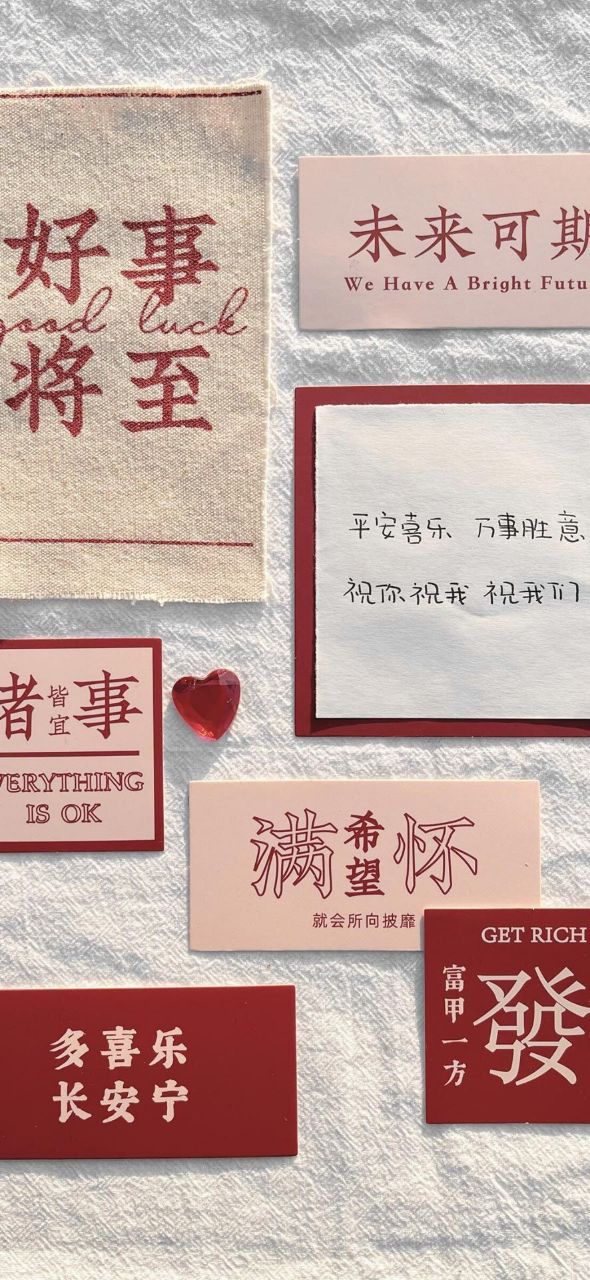 好事
good luck
将至
未来可期
We Have A Bright Futu
平安喜乐 万事胜意
祝你祝我 祝我们
者 皆宜 事
VERYTHING
IS OK
满 希望 怀
就会所向披靡
GET RICH
富甲一方
發
多喜乐
长安宁